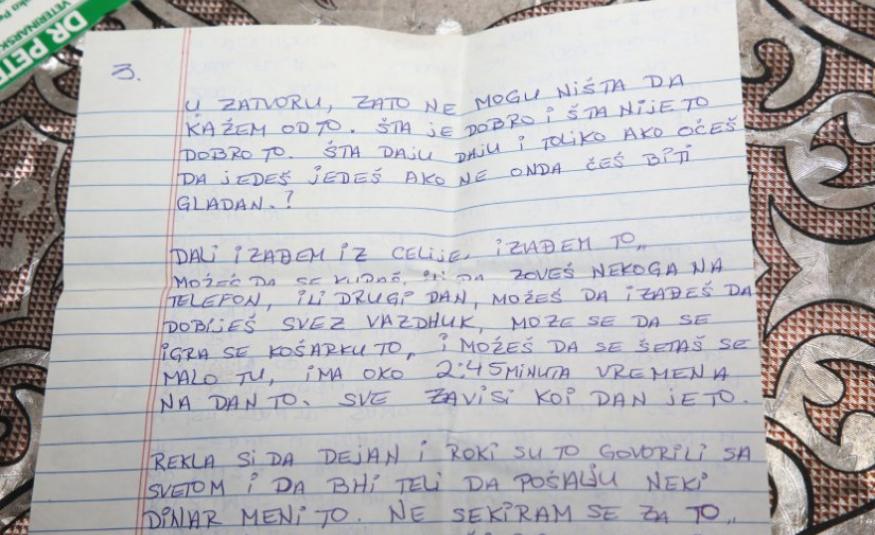 DR PET
VETERINARSK
3.
U ZATVORU, ZATO NE MOGU NIŠTA DA
KAŽEM OD TO. ŠTA JE DOBRO I ŠTA NIJE TO
DOBRO TO. ŠTA DAJU DAJU I TOLIKO AKO OČEŠ
DA JEDEŠ JEDEŠ AKO NE ONDA ČEŠ BITI
GLADAN.?
DALI IZAĐEM IZ CELIJE, IZAĐEM TO,,
MOŽEŠ DA SE KUPAŠ, ILI DA ZOVEŠ NEKOGA NA
TELEFON, ILI DRUGI DAN, MOŽEŠ DA IZAĐEŠ DA
DOBIJEŠ SVEZ VAZDHUK, MOZE SE DA SE
IGRA SE KOŠARKU TO,, I MOŽEŠ DA SE ŠETAŠ SE
MALO TU, IMA OKO 2:45 MINUTA VREMENA
NA DAN TO. SVE ZAVISI KOI DAN JE TO.
REKLA SI DA DEJAN I ROKI SU TO GOVORILI SA
SVETOM I DA BHI TELI DA POŠALJU NEKI
DINAR MENI TO. NE SEKIRAM SE ZA TO,,